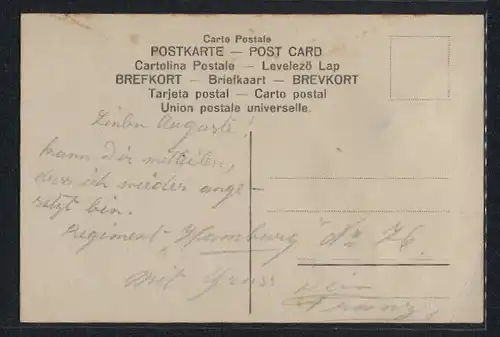 Carte Postale
POSTKARTE — POST CARD
Cartolina Postale — Levelező Lap
BREFKORT — Briefkaart — BREVKORT
Tarjeta postal — Carto postal
Union postale universelle.
Lieber August!
kann dir mitteilen,
dass ich wieder ange-
setzt bin.
Regiment „Hamburg" No 76.
mit Gruss
dein
Franz.